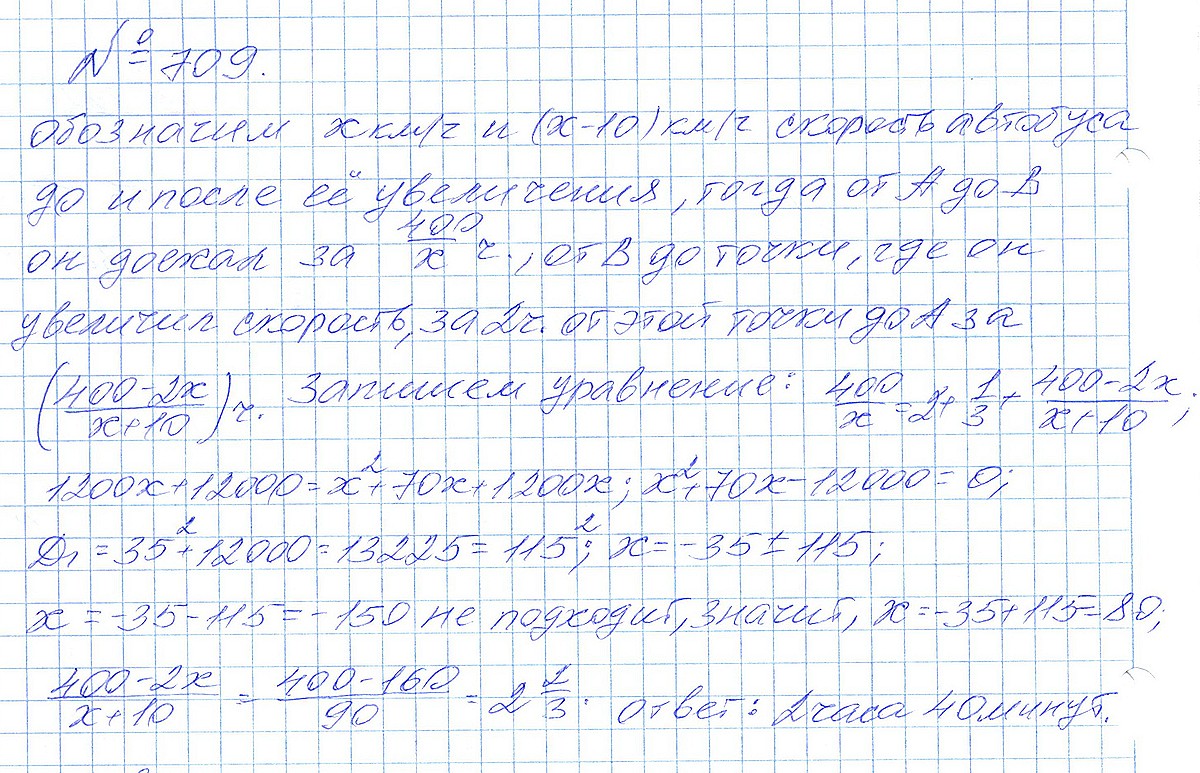 № 709.
обозначим x км/ч и (x-10) км/ч скорость автобуса
до и после её увеличения, тогда от А до В
он доехал за 400/x ч., от В до точки, где он
увеличил скорость, за 2ч. от этой точки до А за
(400-2x/x+10) ч. Запишем уравнение: 400/x = 2 + 1/3 + 400-2x/x+10;
1200x+12000=x²+70x+1200x; x²+70x-12000=0;
D₁ = 35²+12000=13225=115²; x=-35±115;
x=-35-115=-150 не подходит, значит, x=-35+115=80;
400-2x/x+10 = 400-160/90 = 2 2/3. ответ: 2 часа 40 минут.